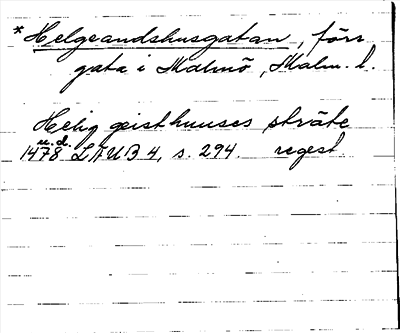 *Helgeandshusgatan, förr
gata i Malmö, Malm. l.
Helig geisthuuses sträte
u.d.
1478 LÄUB 4, s. 294. regest